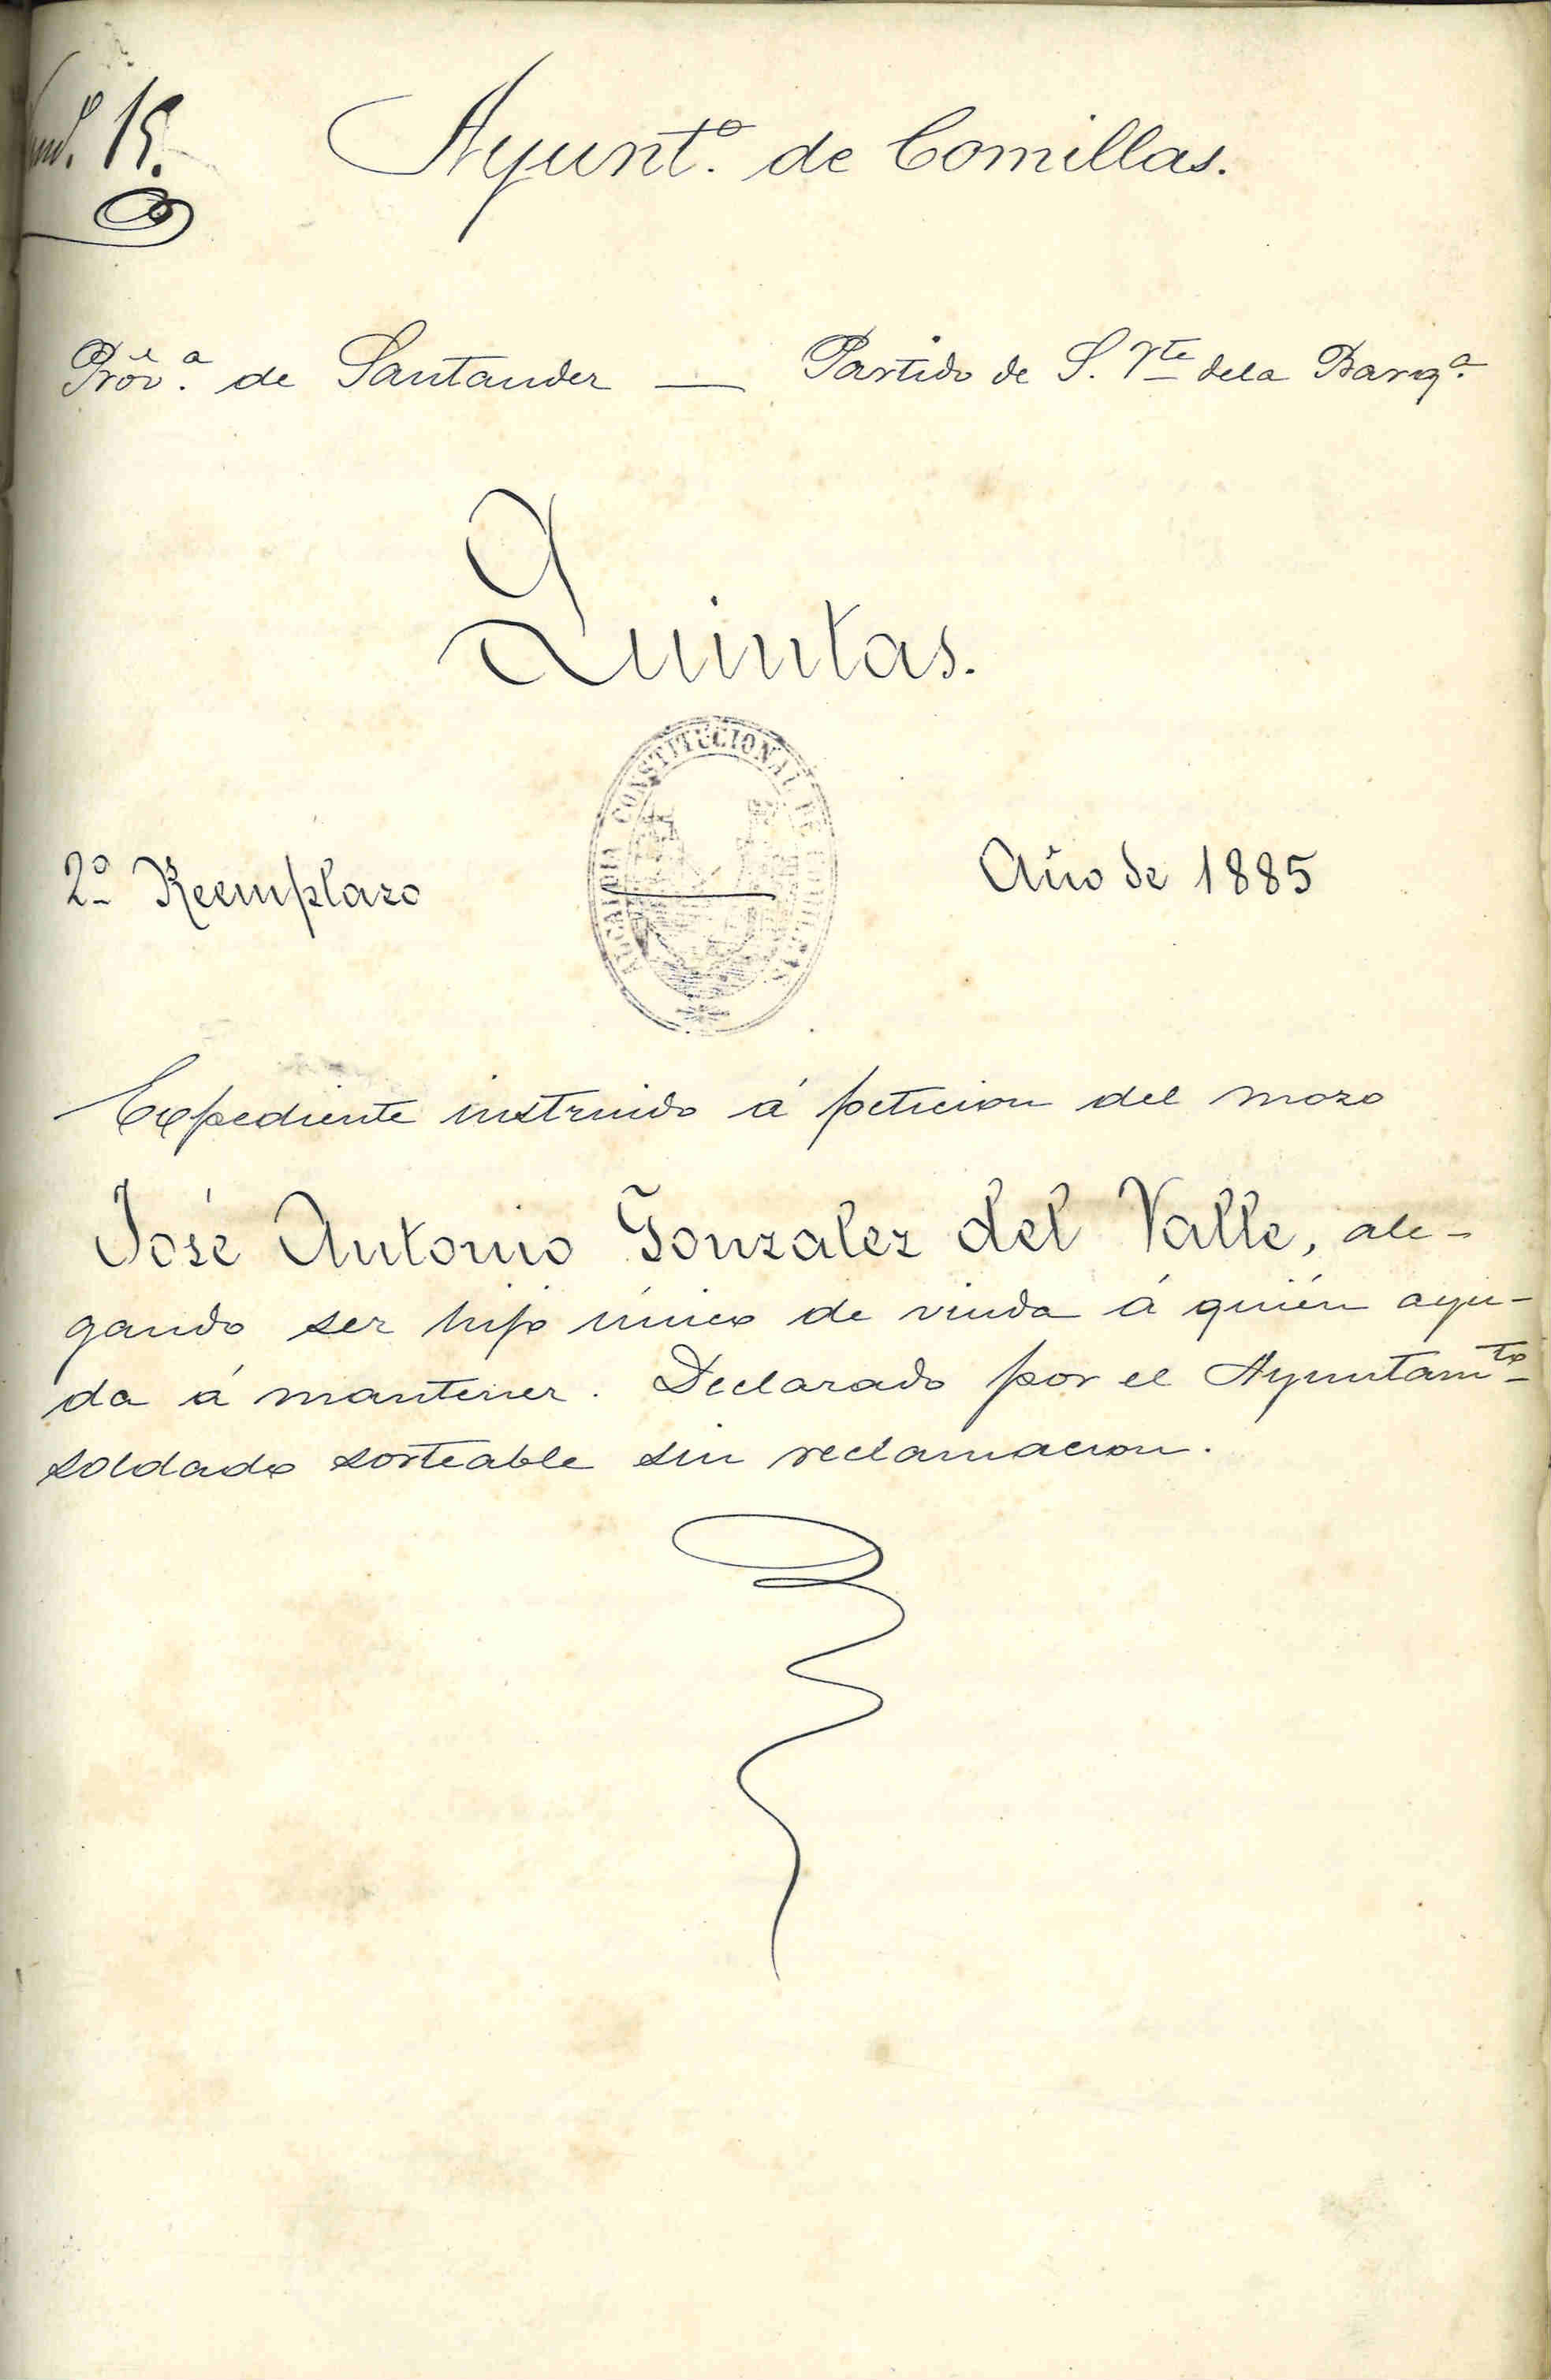 15.
Ayunt.º de Comillas.
Prov.ª de Santander — Partido de S. Vte dela Barq.ª
Quintas.
ALCALDIA CONSTITUCIONAL DE COMILLAS
2º Reemplazo
Año de 1885
Expediente instruido á peticion del mozo
José Antonio Gonzalez del Valle, ale-
gando ser hijo único de viuda á quién ayu-
da á mantener. Declarado por el Ayuntamto
soldado sorteable sin reclamacion.